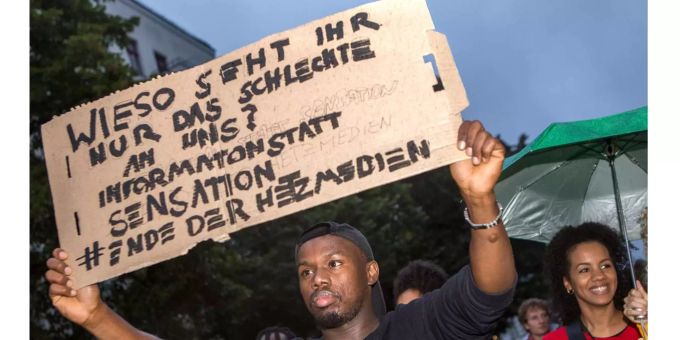 WIESO SEHT IHR
NUR DAS SCHLECHTE
AN UNS?
INFORMATION STATT
SENSATION
#ENDE DER HETZMEDIEN